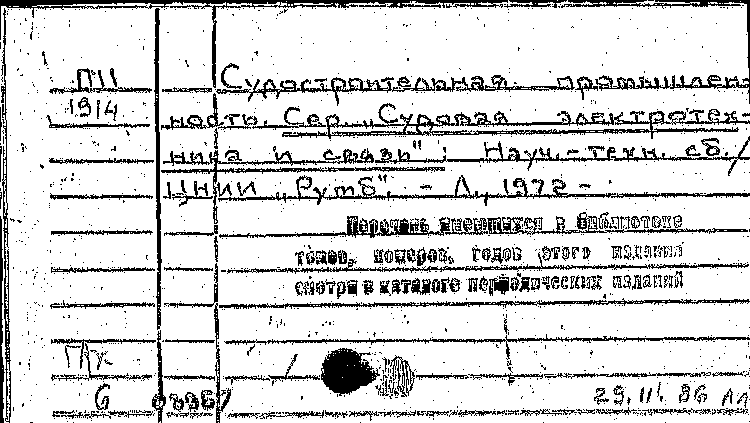 П11 Судостроительная промышлен-
1914 ность. Сер. „Судовая электротех-
ника и связь": Науч.-техн. сб./
ЦНИИ „Румб". - Л., 1972 -
Перечень имеющихся в библиотеке
томов, номеров, годов этого издания
смотри в каталоге периодических изданий
6 29.III.86